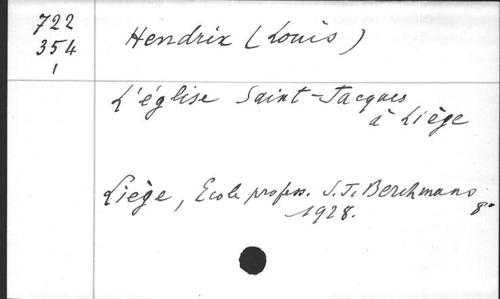 722
354
1
Hendrix (Louis)
L'église Saint-Jacques
à Liège
Liège, Ecole profess. S. J. Berchmans
1928. 8°